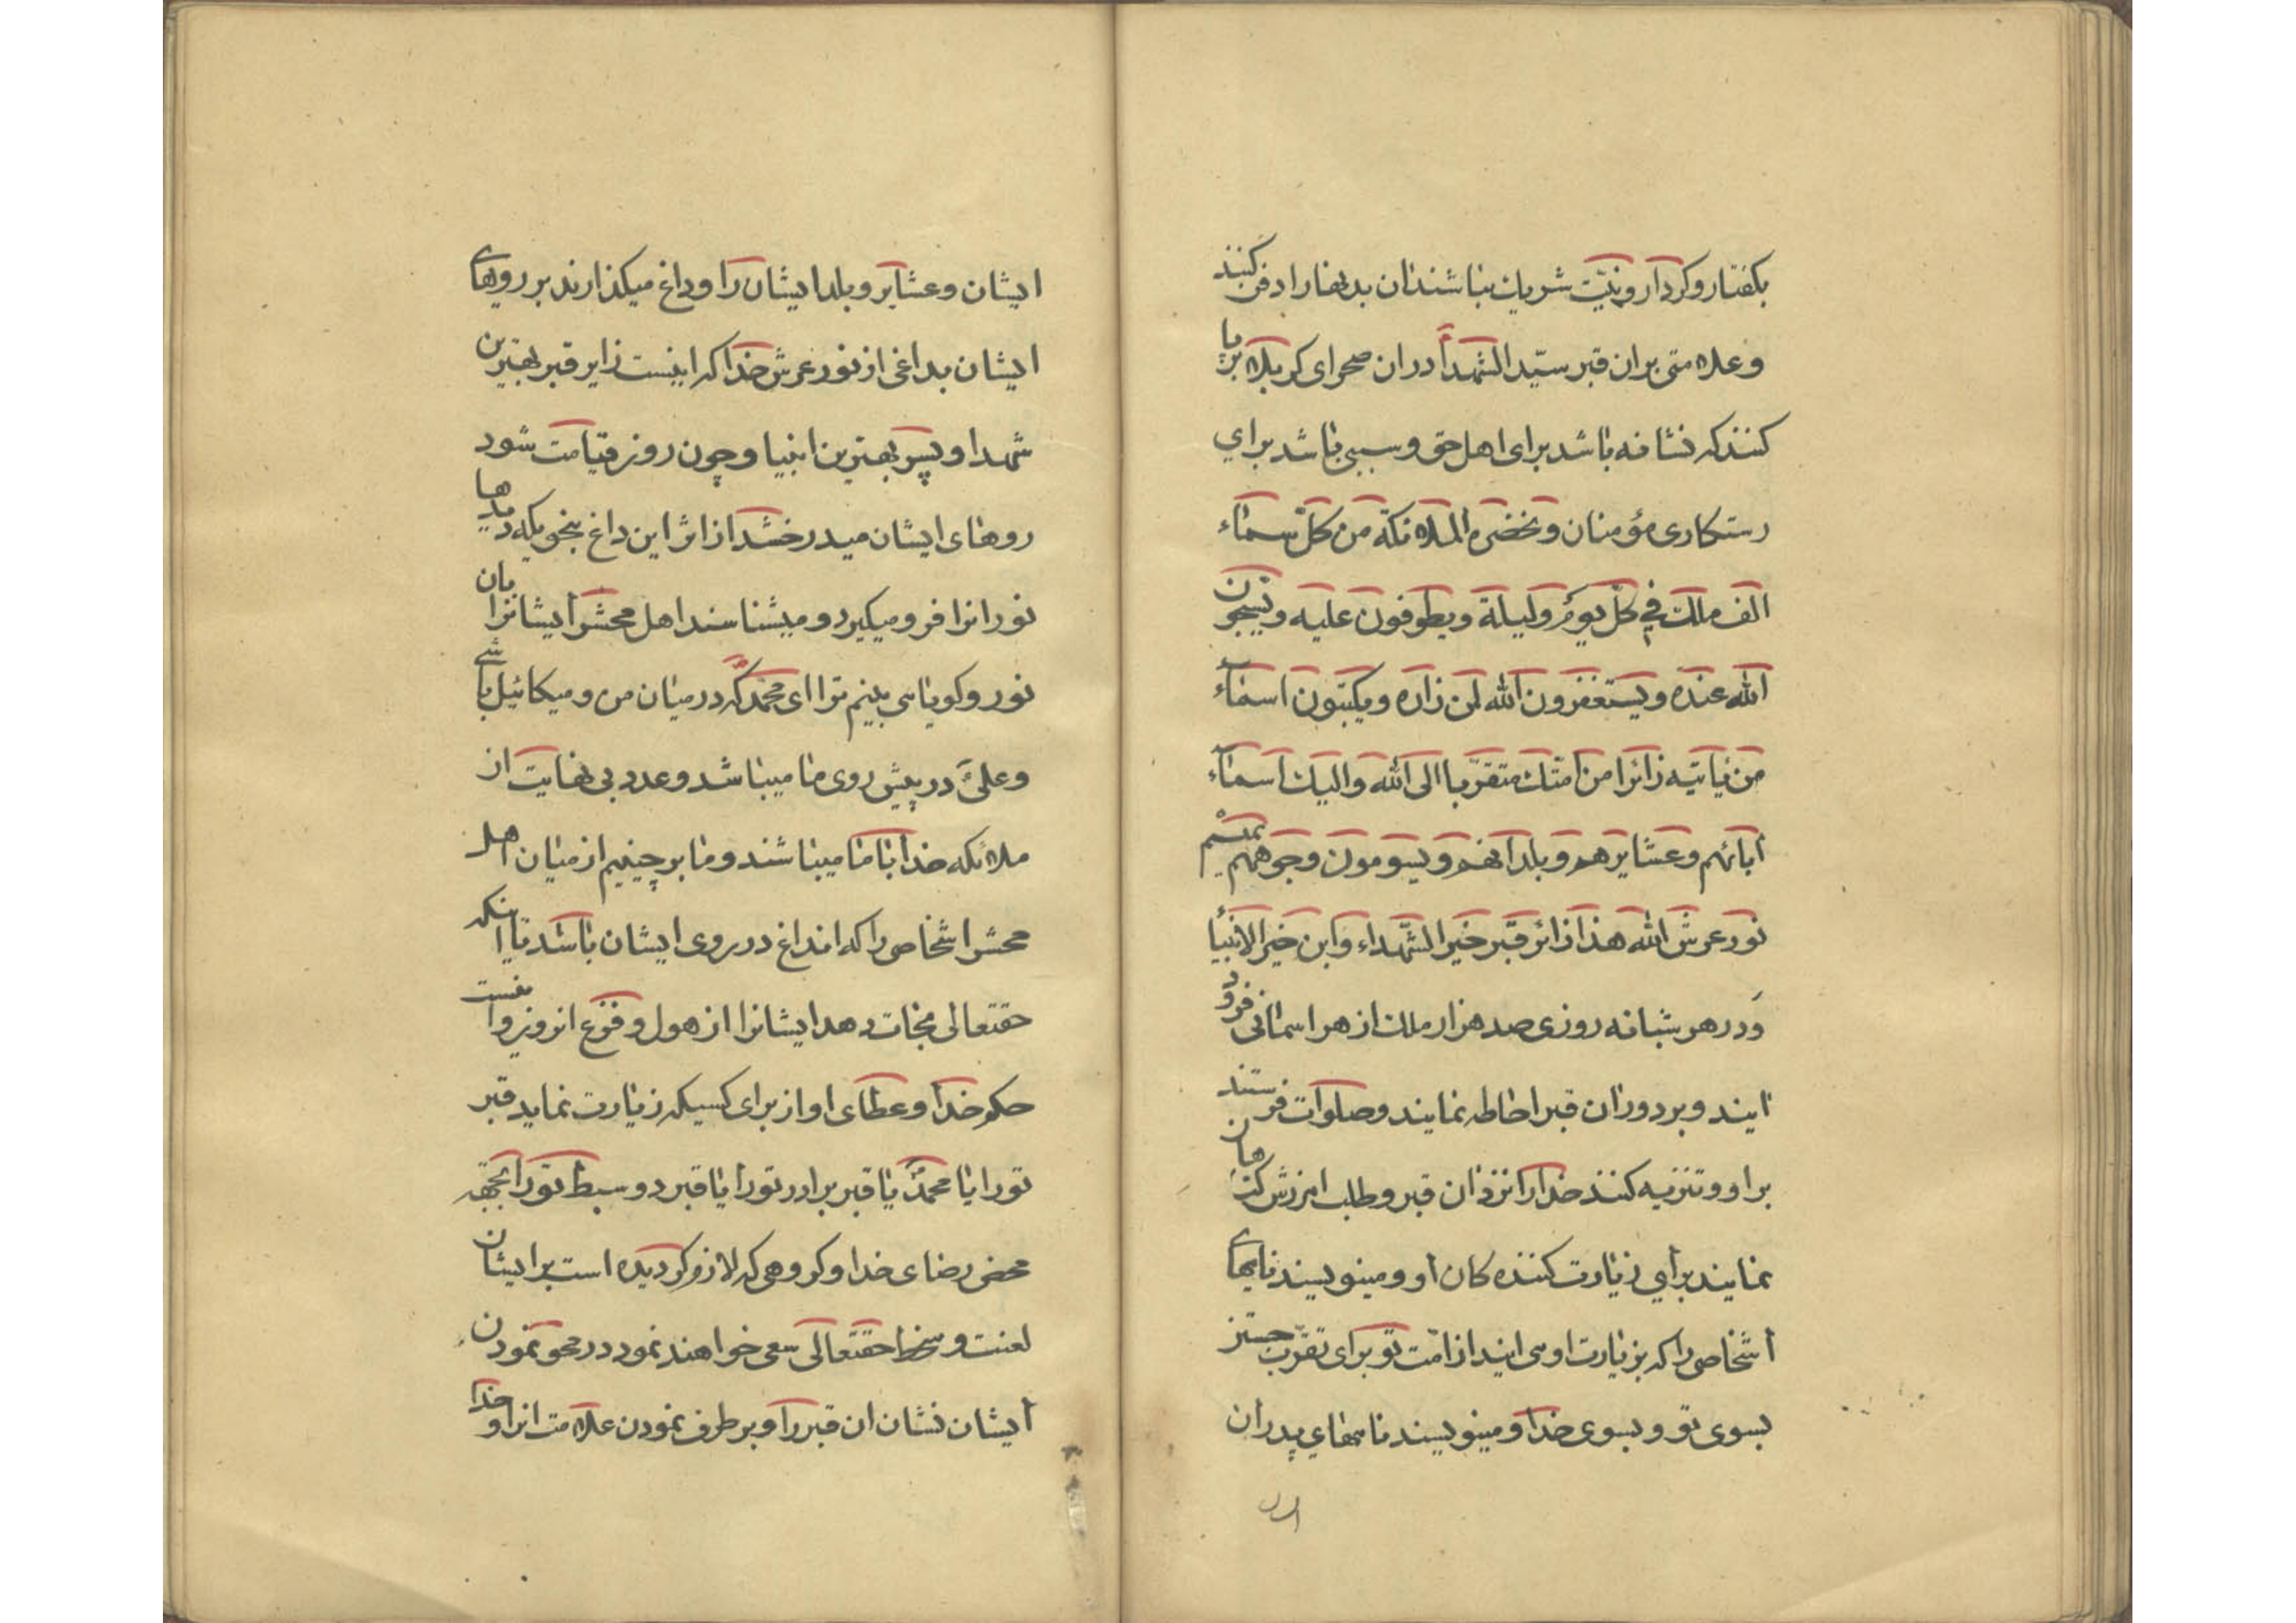 بکفتار و کردار و نیّت شریك نباشند ان بدنها را دفن کنند
و علامتی بران قبر سیّد الشهدا دران صحرای کربلا برپا
کنند که نشانه باشد برای اهل حق و سببی باشد برای
رستکاری مؤمنان و تحضره الملائکة من کلّ سماء
الف ملك فی کلّ یوم و لیلة و یطوفون علیه و یسبحون
الله عنده و یستغفرون الله لمن زاره و یکتبون اسماء
من یاتیه زائرا من امّتك متقرّبا الی الله و الیك اسماء
آبائهم و عشایرهم و بلدانهم و یسومون وجوههم بمیسم
نور عرش الله هذا زائر قبر خیر الشّهداء و ابن خیر الانبیأ
و در هر شبانه روزی صد هزار ملك از هر اسمانی فرود
ایند و بر دوران قبر احاطه نمایند و صلوات فرستند
بر او و تنزیه کنند خدا را نزد ان قبر و طلب امرزش کناهان
نمایند برای زیارت کننده کان او و مینویسند نامهای
اشخاصی را که بزیارت او می ایند از امّت تو برای تقرّب جستن
بسوی تو و بسوی خدا و مینویسند نامهای پدران
ایشان و عشایر و بلد ایشان را و داغ میکذارند بر روهای
ایشان بداغی از نور عرش خدا که اینست زایر قبر بهترین
شهدا و پسر بهترین انبیا و چون روز قیامت شود
روهای ایشان میدرخشد از اثر این داغ بنحویکه دیدها
نور انرا فرو میکیرد و میشناسند اهل محشر ایشانرا بان
نور و کویا می بینم ترا ای محمّد که در میان من و میکائیل باشی
و علی در پیش روی ما میباشد و عدد بی نهایت از
ملائکه خدا با ما میباشند و ما برچینیم از میان اهل
محشر اشخاصی را که انداغ در روی ایشان باشد تا اینکه
حقتعالی نجات دهد ایشانرا از هول و فزع انروز و اینست
حکم خدا و عطای او از برای کسیکه زیارت نماید قبر
تو را یا محمّد یا قبر برادر تو را یا قبر دو سبط تو را بجهة
محض رضای خدا و کروهی که لازم کردیده است بر ایشان
لعنت و سخط حقتعالی سعی خواهند نمود در محو نمودن
ایشان نشان ان قبر را و بر طرف نمودن علامت انرا و خدا